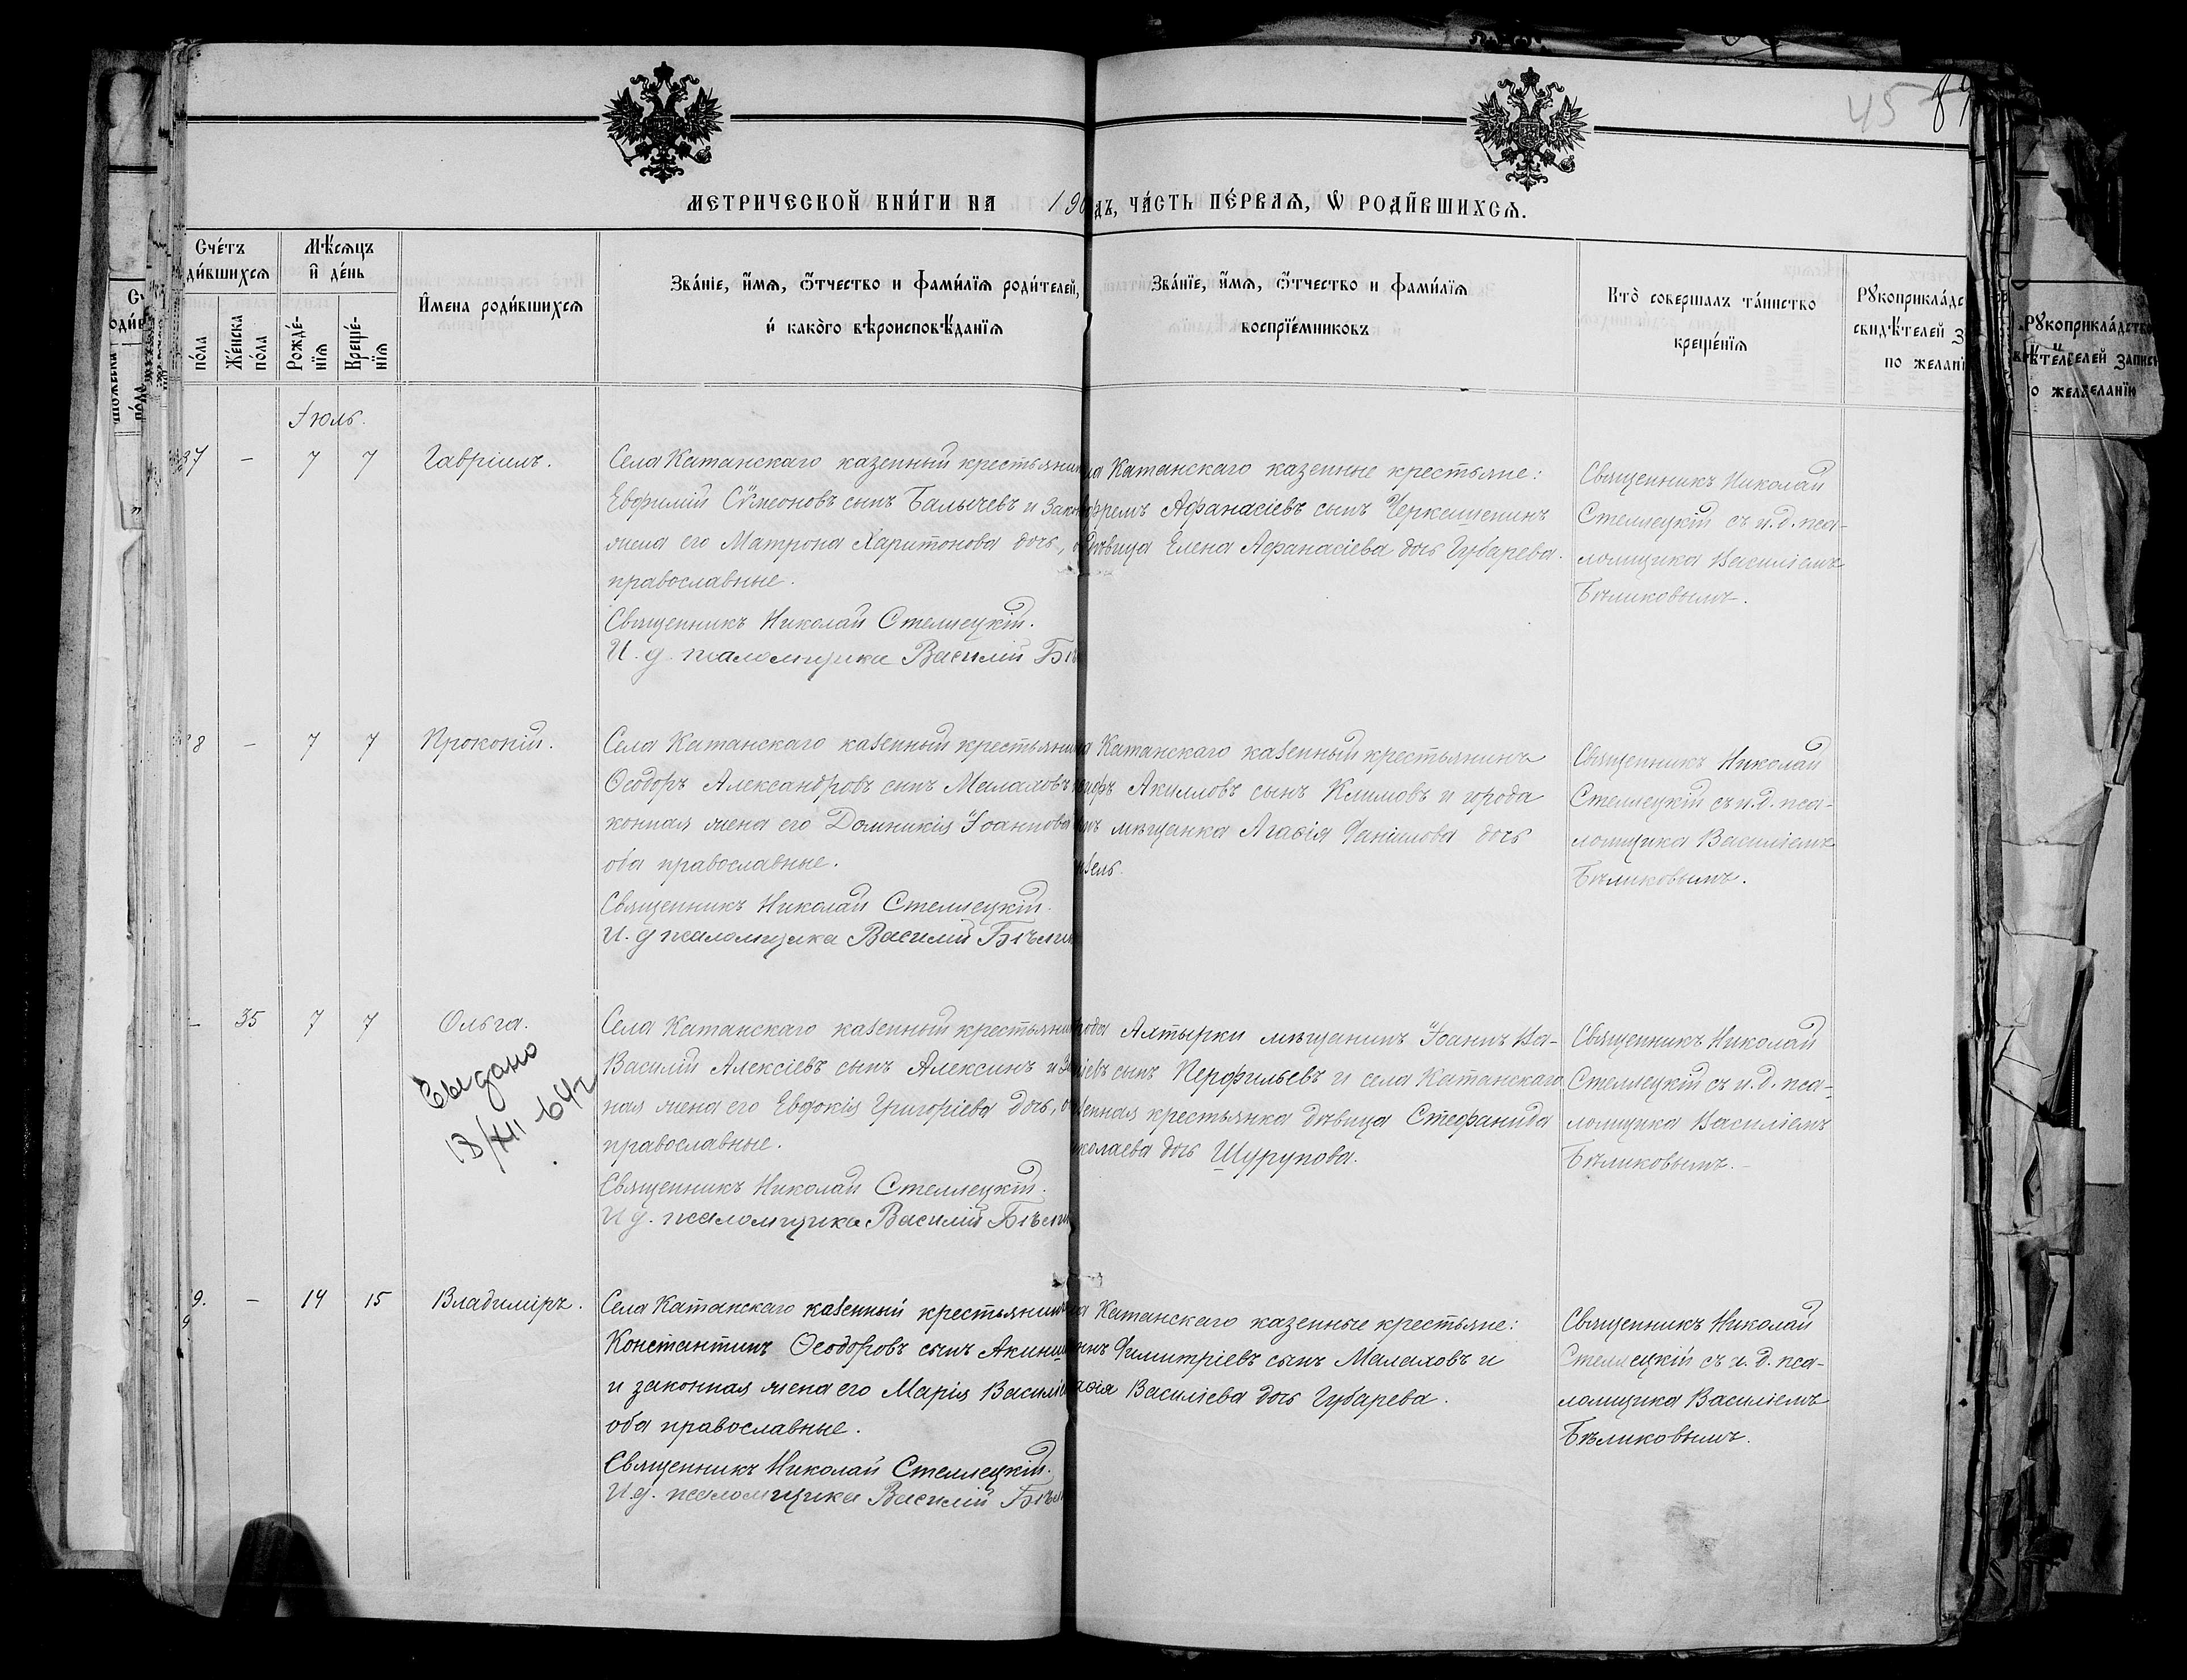 45
МЕТРИЧЕСКОЙ КНИ́ГИ НА 190 дъ, ЧА́СТЬ ПЕ́РВАѦ, Ѡ РОДИ́ВШИХСѦ.
Сче́тъ
ди́вшихсѧ
Мѣ́сѧцъ
и҆ де́нь
И҆мена роди́вшихсѧ
Зва́ніе, и҆́мѧ, ѻ҆́тчество и фами́лїѧ роди́телей,
и҆ како́го вѣроисповѣ́данїѧ
Зва́нїе, и҆́мѧ, ѻ҆́тчество и фами́лїѧ
воспрїе́мниковъ
Кто̀ соверша́лъ та́инство
креще́нїѧ
Рꙋкоприкла́дс
свидѣ́телей з
по желані
по́ла
Же́нска
по́ла
Рожде́-
нїѧ
Креще́-
нїѧ
Іюль.
37 - 7 7 Гавріилъ.
Села Катанскаго казенный крестьянин
Евфимій Сѵмеоновъ сынъ Балычевъ и зак
жена его Матрона Харитонова дочь,
православные.
Священникъ Николай Стеллецкій.
И. д. псаломщика Василій Бѣ
ла Катанскаго казенные крестьяне:
фремъ Афанасіевъ сынъ Черкашенинъ
дѣвица Елена Афанасіева дочь Губарева.
Священникъ Николай
Стеллецкій съ и.д. пса-
ломщика Василіемъ
Бѣликовымъ.
8 - 7 7 Прокопій.
Села Катанскаго казенный крестьянин
Ѳеодоръ Александровъ сынъ Малаховъ
конная жена его Домникія Іоаннова
оба православные.
Священникъ Николай Стеллецкій.
И. д псаломщика Василій Бѣлик
а Катанскаго казенный крестьянинъ
Акиловъ сынъ Климовъ и города
мѣщанка Агаѳія Даніилова дочь
Священникъ Николай
Стеллецкій съ и.д. пса-
ломщика Василіемъ
Бѣликовымъ.
- 35 7 7 Ольга.
Выдано
18/XII-64г
Села Катанскаго казенный крестьянин
Василій Алексіевъ сынъ Алексинъ и за
ная жена его Евдокія Григоріева дочь, о
православные.
Священникъ Николай Стеллецкій.
И д. псаломщика Василій Бѣли
рода Ахтырки мѣщанинъ Іоаннъ Ва-
ліевъ сынъ Перфильевъ и села Катанскаго
зенная крестьянка дѣвица Стефанида
колаева дочь Шурупова.
Священникъ Николай
Стеллецкій съ и.д. пса-
ломщика Василіемъ
Бѣликовымъ.
9. - 14 15 Владиміръ.
Села Катанскаго казенный крестьянин
Константинъ Ѳеодоровъ сынъ Акинш
и законная жена его Марія Василі
оба православные.
Священникъ Николай Стеллецкій.
И.д. псаломщика Василій Бѣл
ла Катанскаго казенные крестьяне:
Димитріевъ сынъ Малаховъ и
Василіева дочь Губарева.
Священникъ Николай
Стеллецкій съ и.д. пса-
ломщика Василіемъ
Бѣликовымъ.